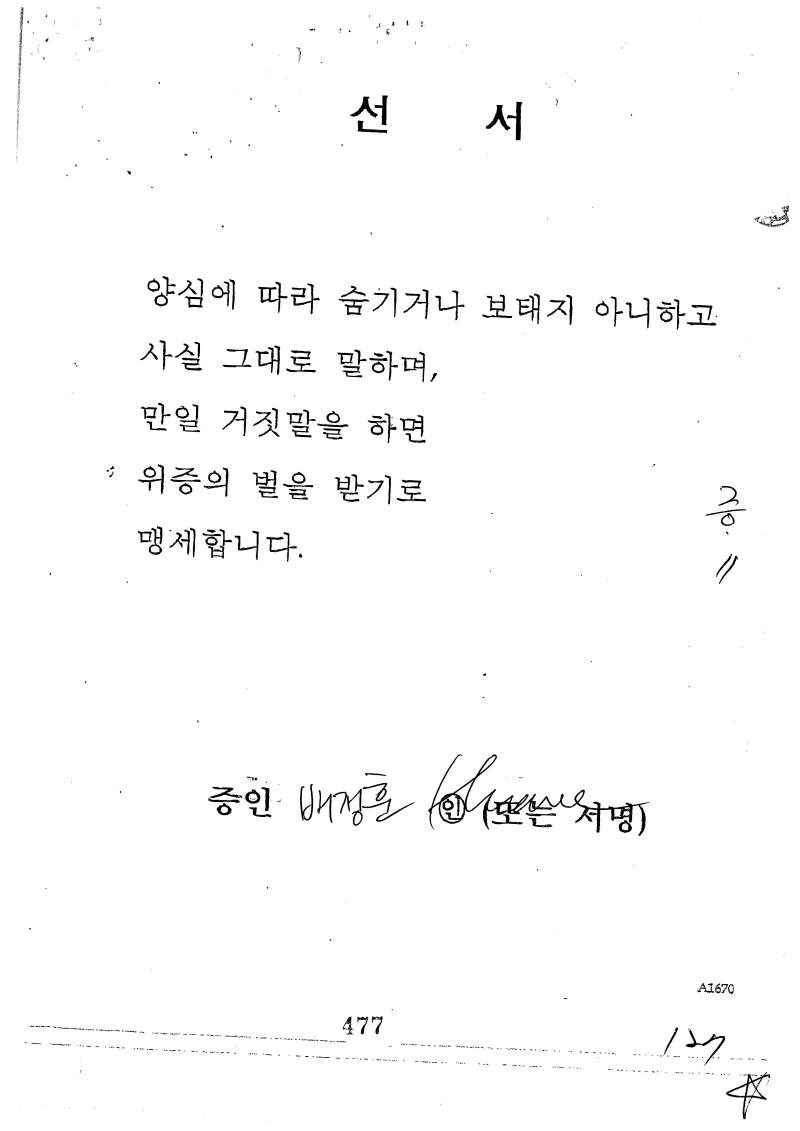 선 서
양심에 따라 숨기거나 보태지 아니하고
사실 그대로 말하며,
만일 거짓말을 하면
위증의 벌을 받기로
맹세합니다.
증
〃
증인 배정훈 ㊞ (또는 서명)
A1670
477
127